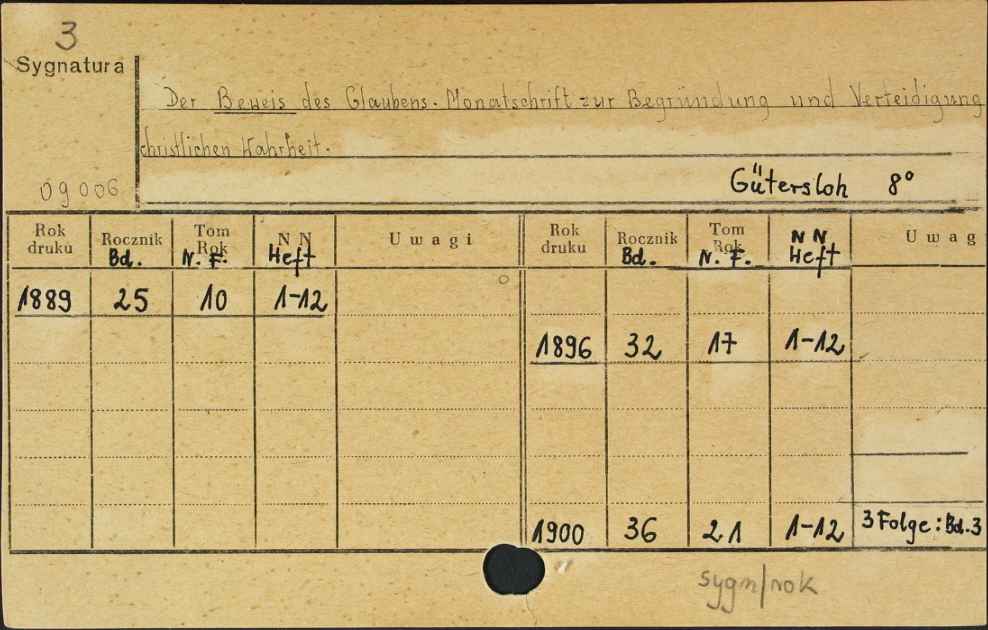 3
Sygnatura
Der Beweis des Glaubens. Monatschrift zur Begründung und Verteidigung
christlichen Wahrheit.
09006
Gütersloh 8°
Rok druku Rocznik Bd. Tom Rok N. F. N N Heft Uwagi Rok druku Rocznik Bd. Tom Rok N. F. N N Heft Uwag
1889 25 10 1-12
1896 32 17 1-12
1900 36 21 1-12 3 Folge: Bd. 3
sygn/rok